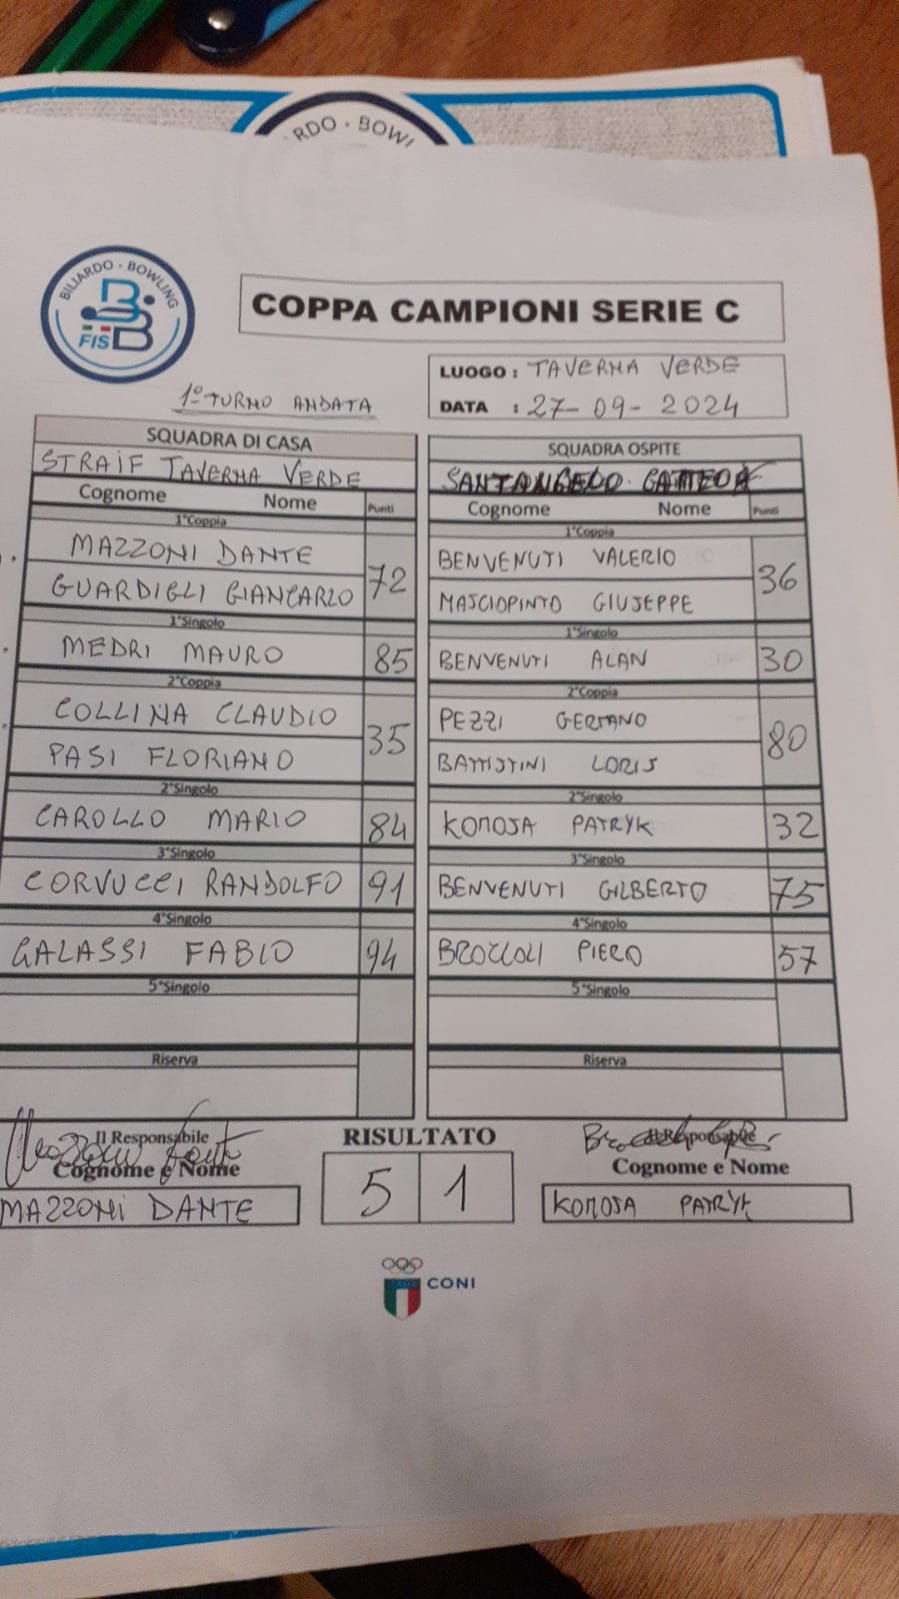 RDO · BOWL
BILIARDO · BOWLING
FISBB
COPPA CAMPIONI SERIE C
LUOGO : TAVERNA VERDE
1° TURNO ANDATA
DATA : 27-09-2024
SQUADRA DI CASA
STRAIF TAVERNA VERDE
Cognome Nome Punti
1°Coppia
MAZZONI DANTE
72
GUARDIGLI GIANCARLO
1°Singolo
MEDRI MAURO 85
2°Coppia
COLLINA CLAUDIO
35
PASI FLORIANO
2°Singolo
CAROLLO MARIO 84
3°Singolo
CORVUCCI RANDOLFO 91
4°Singolo
GALASSI FABIO 94
5°Singolo
Riserva
SQUADRA OSPITE
SANTANGELO GATTEO
Cognome Nome Punti
1°Coppia
BENVENUTI VALERIO
36
MASCIOPINTO GIUSEPPE
1°Singolo
BENVENUTI ALAN 30
2°Coppia
PEZZI GERMANO
80
BATTISTINI LORIS
2°Singolo
KOMOSA PATRYK 32
3°Singolo
BENVENUTI GILBERTO 75
4°Singolo
BROCCOLI PIERO 57
5°Singolo
Riserva
Il Responsabile
Cognome e Nome
MAZZONI DANTE
RISULTATO
5 1
Cognome e Nome
KOMOSA PATRYK
CONI